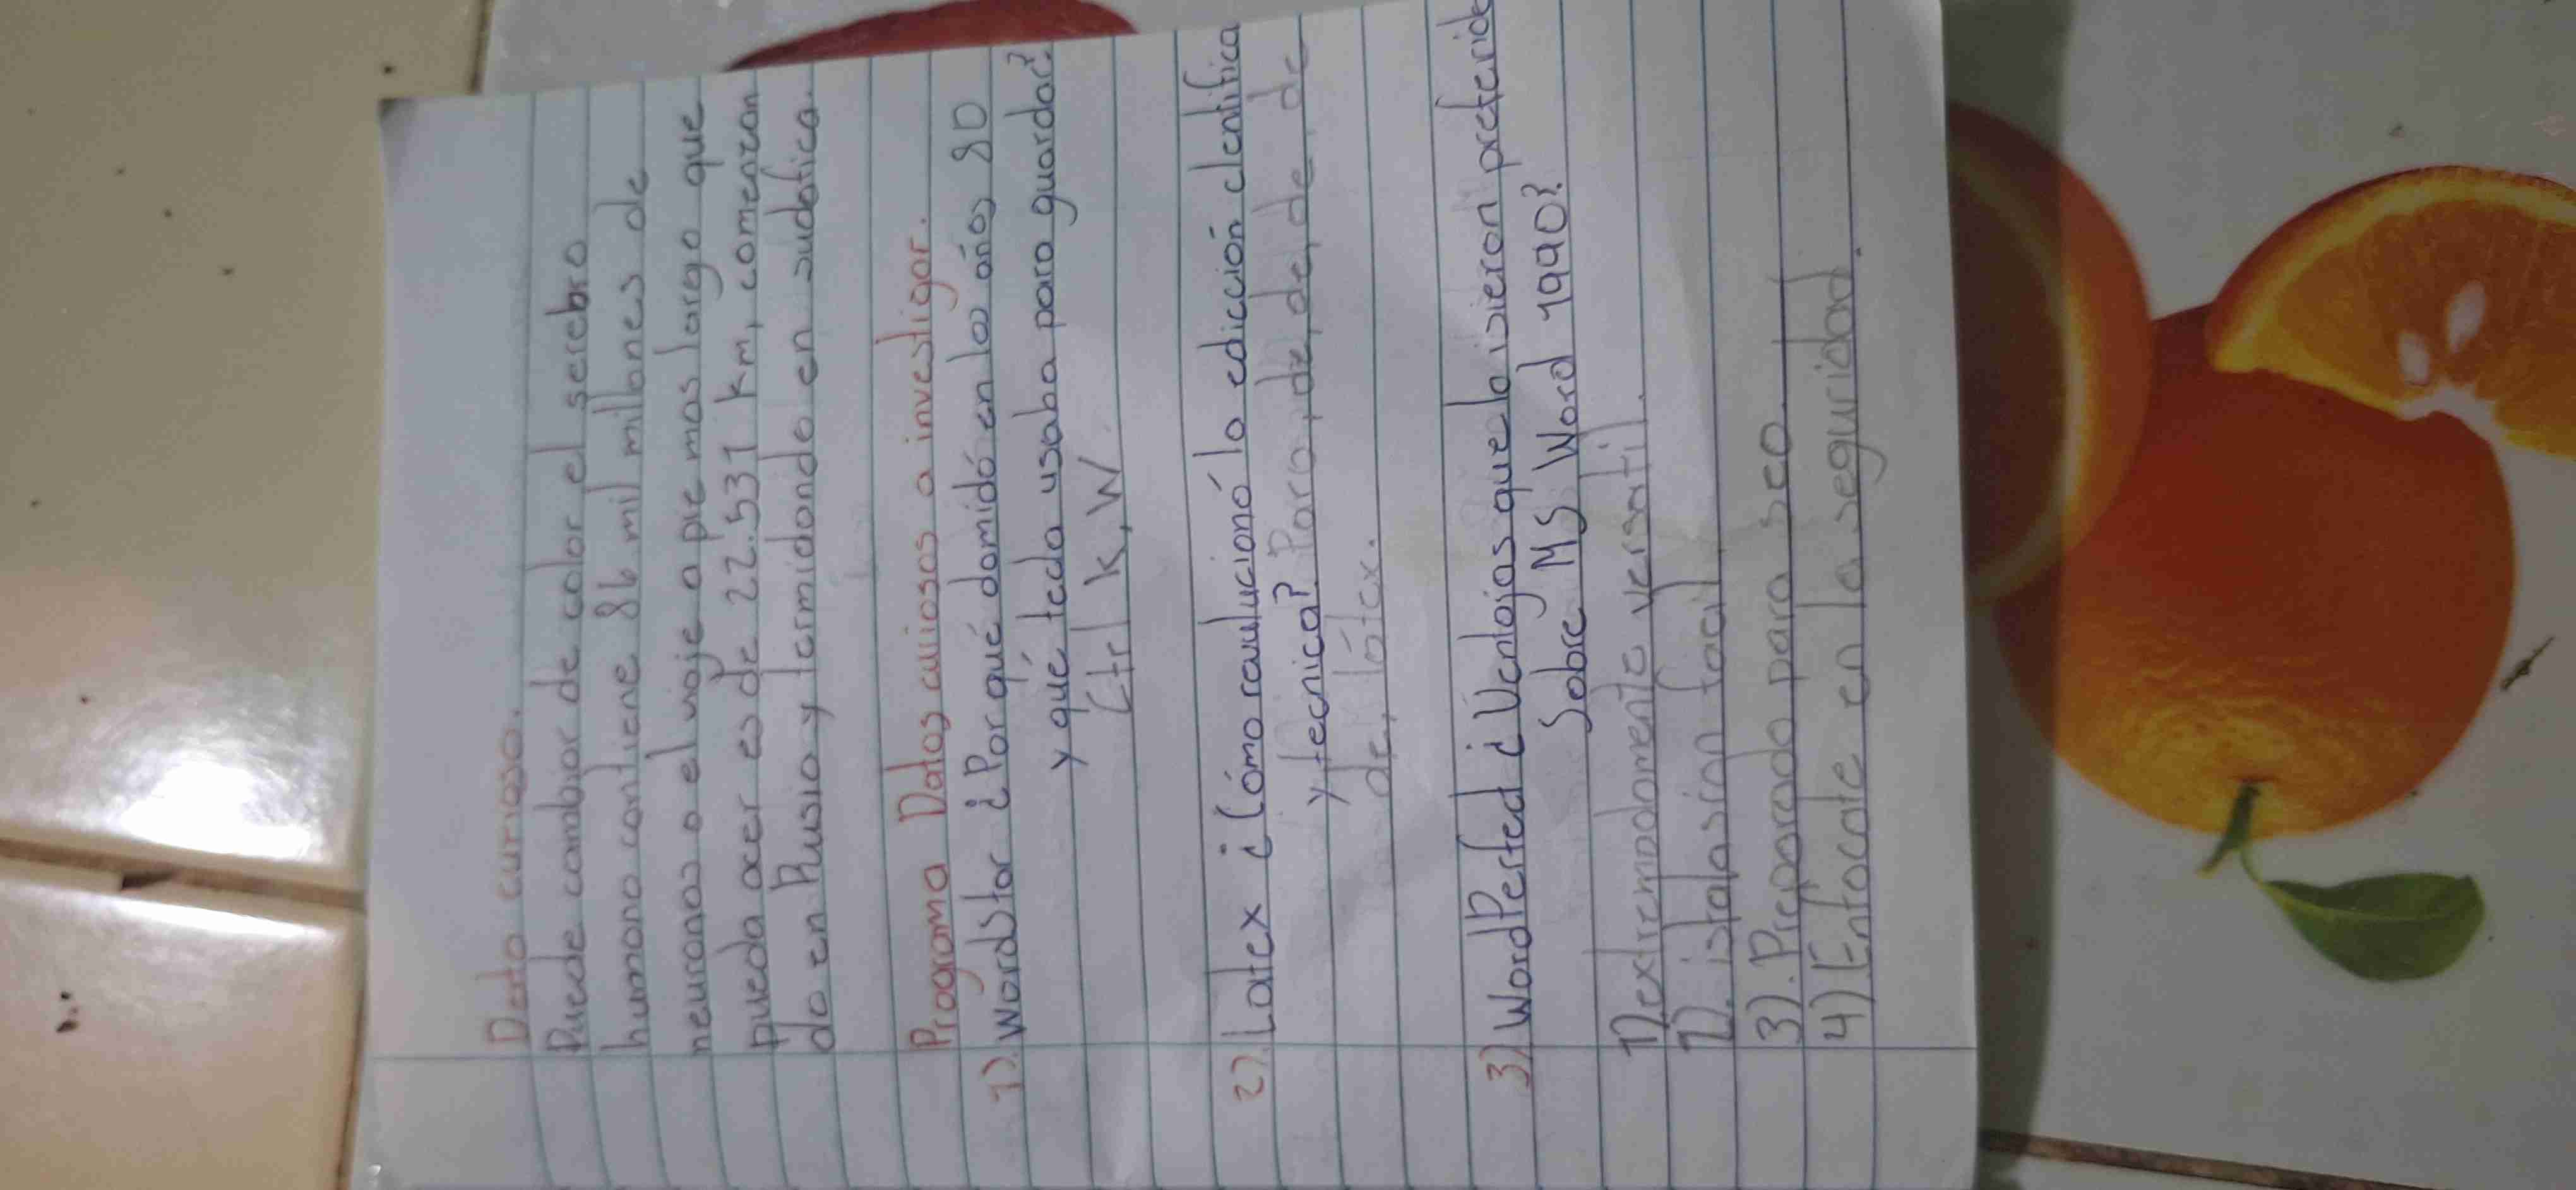 Dato curioso.
Puede combior de color el serebro
humono contiene 86 mil millones de
neuronas o el viaje a pie mas largo que
pueda acer es de 22.531 km, comenzan
do en Rusia y termidondo en sudafica.
Programa Datos cuiosos a investigar.
1). WordStar ¿Porqué domidó en los años 80
y qué tecla usaba para guardar?
Ctrl K, W
2). Latex ¿Cómo revulucionó la edicción cientifica
y tecnica? Para, de, de, de, de
de, látex.
3) WordPerfect ¿Ventajas que lo isieron preferido
Sobre MS Word 1990?
1) extremadamente versatil.
2). istalasion facil
3). Preparado para seo.
4) Enfocate en la seguridad.